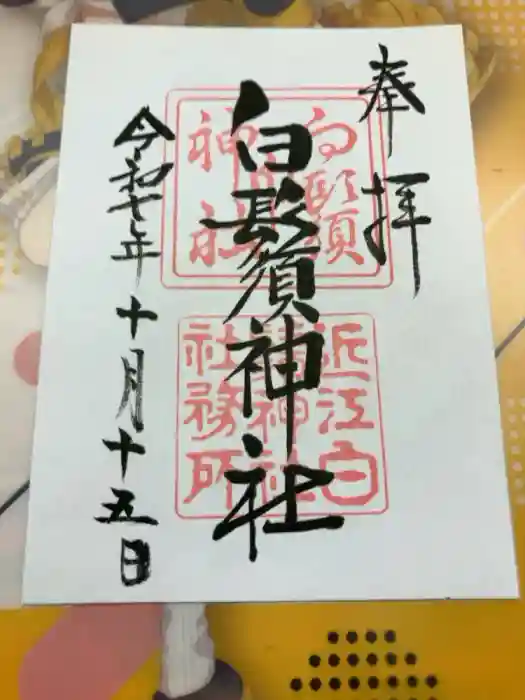 奉拝
白鬚神社
令和七年十月十五日
白鬚
神社
近江白
鬚神社
社務所